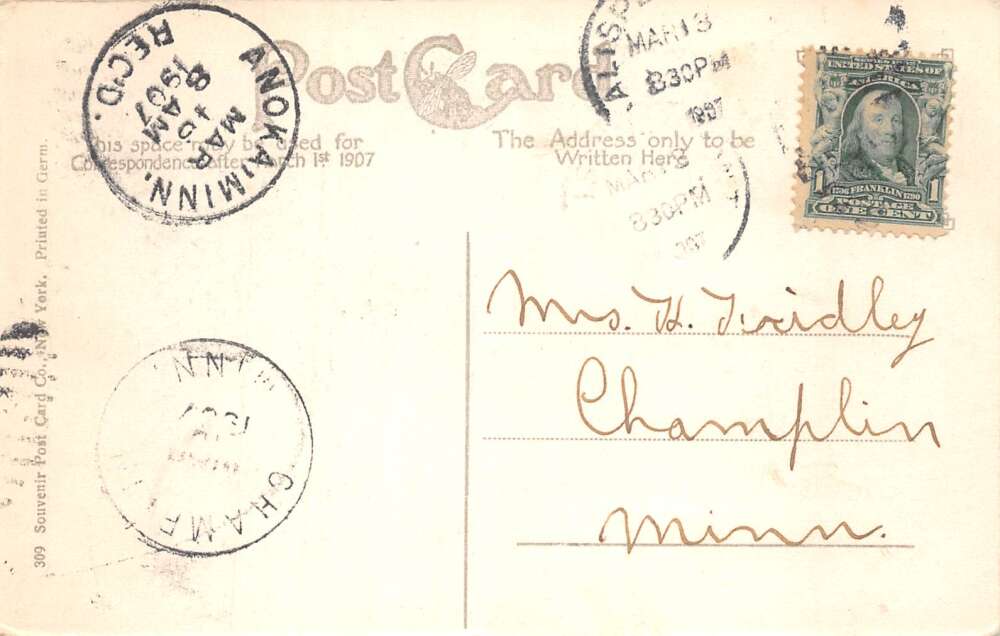 Post Card
This space may be used for
Correspondence After March 1st 1907
The Address only to be
Written Here
ANOKA, MINN.
MAR
8 AM
1907
REC'D.
MAR 13
830PM
1907
MAR 13
830PM
907
UNITED STATES OF
AMERICA
1 1706 FRANKLIN 1790 1
POSTAGE
ONE CENT
Mrs. H. Fridley
Champlin
Minn.
MINN
1907
CHAMPLIN
309 Souvenir Post Card Co., New York. Printed in Germ.